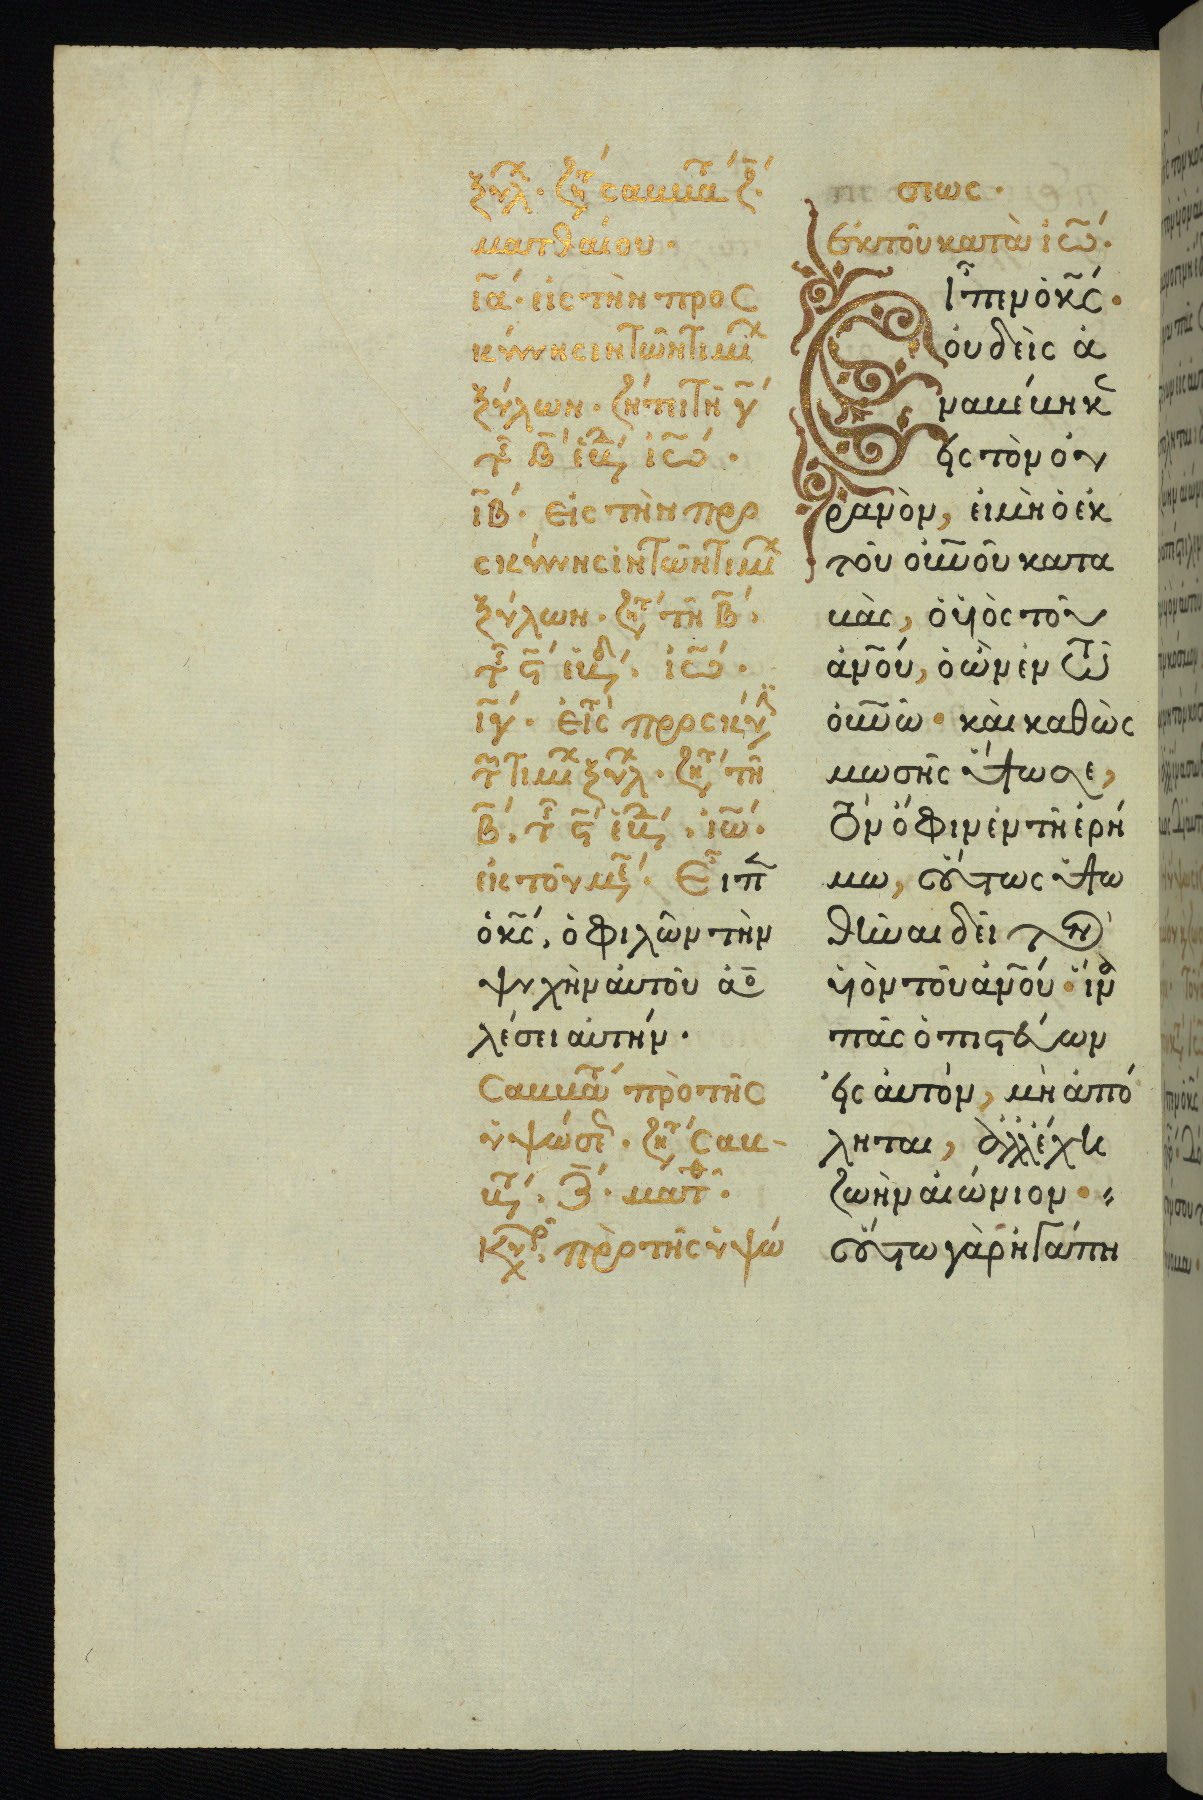 ξύλ · ζητ σαββάτ ζ ·
ματθαίου ·
ια · εἰς τὴν προς
κύνησιν τῶν τιμι
ξύλων · ζη ἐπὶ τῆ γ
τῆς β ἑβδ ἰω ·
ιβ · εἰς τὴν προ
σκύνησιν τῶν τιμι
ξύλων · ζητ τῆ β ·
τῆς ϛ ἑβδ · ἰω ·
ιγ · εἰς προσκύ
τῶν τιμι ξύλ · ζητ τῆ
β · τῆς ϛ ἑβδ · ἰω ·
ἐκ τοῦ · Εἶπ
ὁ κς, ὁ φιλῶν τὴν
ψυχὴν αὐτοῦ ἀπο
λέσει αὐτήν ·
Σαββάτ πρὸ τῆς
ὑψώσε · ζητ Σαβ
βάτ · ζ · ματθ ·
Κυρ πρὸ τῆς ὑψώ
σεως ·
Ἐκ τοῦ κατὰ ἰω ·
Εἶπεν ὁ κς ·
οὐδεὶς ἀ
ναβέβηκε
εἰς τὸν οὐ
ρανὸν, εἰμὴ ὁ ἐκ
τοῦ οὐνοῦ κατα
βὰς, ὁ υἱὸς τοῦ
ἀνου, ὁ ὢν ἐν τῶ
οὐνῶ · καὶ καθὼς
μωσῆς ὕψωσε,
τὸν ὄφιν ἐν τῆ ἐρή
μω, οὕτως ὑψω
θῆναι δεῖ τὸν
υἱὸν τοῦ ἀνου · ἵνα
πᾶς ὁ πιστεύων
εἰς αὐτὸν, μὴ ἀπό
ληται, ἀλλ' ἔχη
ζωὴν αἰώνιον ·
οὕτω γὰρ ἠγάπη